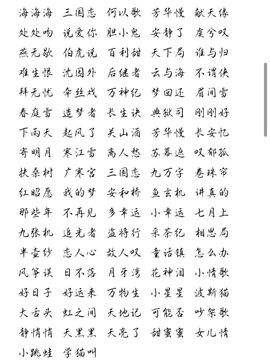 海海海 三国恋 何以歌 芳华慢 献天缘
处处吻 说爱你 胆小鬼 安静了 虞兮叹
燕无歇 伯虎说 百利甜 天下局 谁与归
难生恨 沈园外 后继者 云与海 不谓侠
拜无忧 牵丝戏 万神纪 梦回还 眉间雪
春庭雪 造梦者 长生诀 典狱司 刚刚好
下雨天 起风了 关山酒 芳华慢 长安忆
寄明月 寒江雪 离人愁 苏幕遮 叹郁孤
扶桑树 广寒宫 三国恋 九万字 卷珠帘
红昭愿 我的梦 安和桥 鱼玄机 讲真的
那些年 不再见 多幸运 小幸运 七月上
九张机 追光者 盗将行 采茶纪 相思局
半壶纱 恋人心 故人叹 童话镇 怎么办
风筝误 日不落 月牙湾 花神泪 小情歌
好日子 好运来 万物生 小星星 波斯猫
大舌头 虹之间 天地记 可能否 吵架歌
静悄悄 天黑黑 天亮了 甜蜜蜜 女儿情
小跳蛙 学猫叫